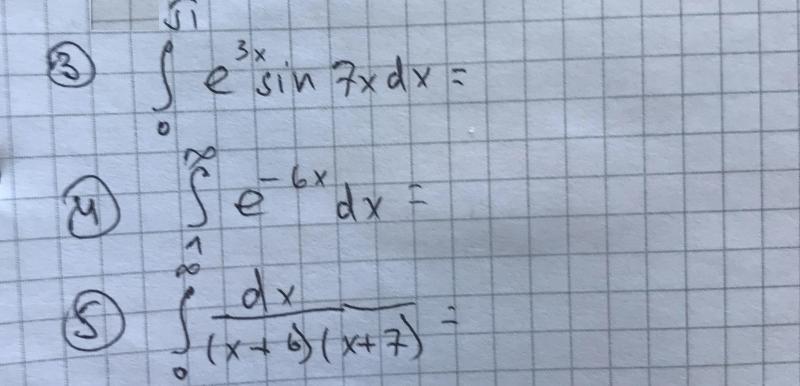 ③ ∫₀^π e^{3x} sin 7x dx =
④ ∫₁^∞ e^{-6x} dx =
⑤ ∫₀^∞ dx / (x+6)(x+7) =